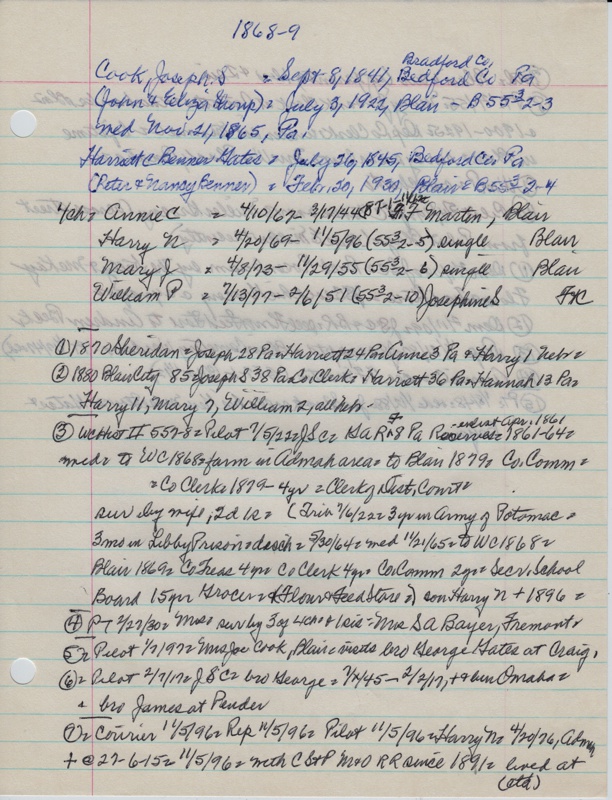 1868-9
Bradford Co,
Cook, Joseph S = Sept 8, 1841, Bedford Co Pa
(John & Eliza Stronp) = July 3, 1922, Blair - B 55³2-3
med Nov. 21, 1865, Pa.
Harriett C Benner Gates = July 26, 1845, Bedford Co Pa
(Peter & Nancy Benner) = Febr. 20, 1930, Blair = B 55³2-4
4/ch = Annie C = 4/10/67 - 3/17/44 Martin, Blair
Harry N = 4/20/69 - 11/5/96 (55³2-5) single Blair
Mary J = 4/8/73 - 11/29/55 (55³2-6) single Blair
William P = 7/13/77 - 2/6/51 (55³2-10) Josephine S
① 1870 Sheridan = Joseph 28 Pa = Harriett 24 Pa = Anne 3 Pa = Harry 1 Nebr =
② 1880 Blair City 85 = Joseph S 38 Pa Co Clerk = Harriett 36 Pa = Hannah 13 Pa =
Harry 11, Mary 7, William 2, all Nebr -
enlist Apr. 1861
③ WC Hist II 557-8 = Pilot 7/5/22 = J S C = 8 Pa Reserves = 1861-64 =
med = to WC 1868 = farm in Admah area = to Blair 1879 = Co. Comm =
= Co Clerk = 1879 - 4yr = Clerk of Dist. Court =
sur by wife, 2d 1s = (Trib 7/6/22 = 3 yr in Army of Potomac =
3 mos in Libby Prison = disch = 5/30/64 = med 11/21/65 = to WC 1868 =
Blair 1869 = Co Treas 4yr = Co Clerk 4yr = Co. Comm 2yr = Secr. School
Board 15yr Grocer = (Flour & Feed Store) = son Harry N + 1896 =
④ PT 2/27/30 = Mrs = sur by 3 of 4 ch & 1 sis = Mrs S A Bayer, Fremont =
⑤ = Pilot 1/7/97 = Mrs Joe Cook, Blair = visits bro George Gates at Craig,
⑥ = Pilot 2/7/17 = J S C = bro George = 7/4/45 - 2/2/17, + & bur Omaha =
& bro James at Pender
⑦ = Courier 11/5/96 = Rep 11/5/96 = Pilot 11/5/96 = Harry N = 4/20/76, Admah
+ @ 27-6-15 = 11/5/96 = with C St P M & O RR since 1891 = lived at
(otd)